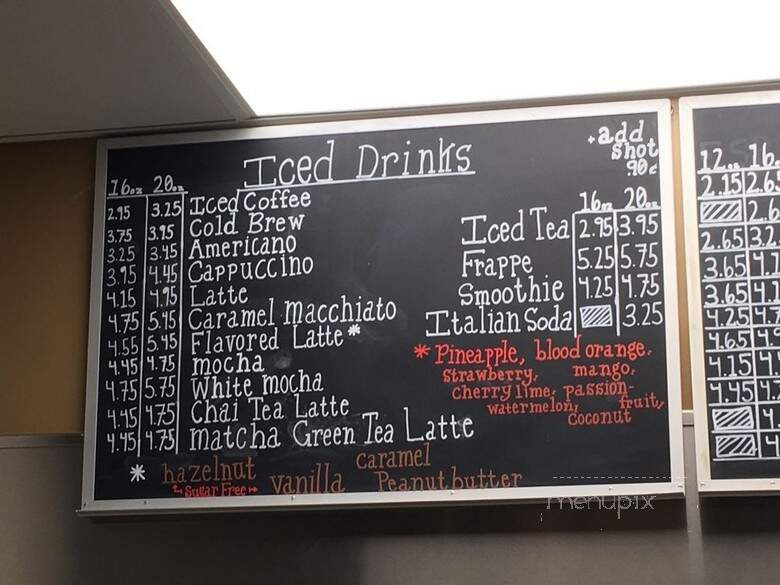 Iced Drinks
+add shot 90¢
16oz 20oz
2.95 3.25 Iced Coffee
3.75 3.95 Cold Brew
3.25 3.45 Americano
3.95 4.45 Cappuccino
4.15 4.95 Latte
4.75 5.45 Caramel Macchiato
4.55 5.45 Flavored Latte *
4.45 4.75 mocha
4.75 5.75 White mocha
4.45 4.75 Chai Tea Latte
4.45 4.75 Matcha Green Tea Latte
* hazelnut vanilla caramel Peanut butter
Sugar Free
16oz 20oz
Iced Tea 2.95 3.95
Frappe 5.25 5.75
Smoothie 4.25 4.75
Italian Soda 3.25
* Pineapple, blood orange,
strawberry, mango,
cherry lime, passion-
watermelon, fruit,
coconut
12oz 16
2.15 2.6
2.65 3.2
3.65 4.
3.65 4.
4.25 4.
4.65 4.
4.15 4.
4.45 4.
menupix